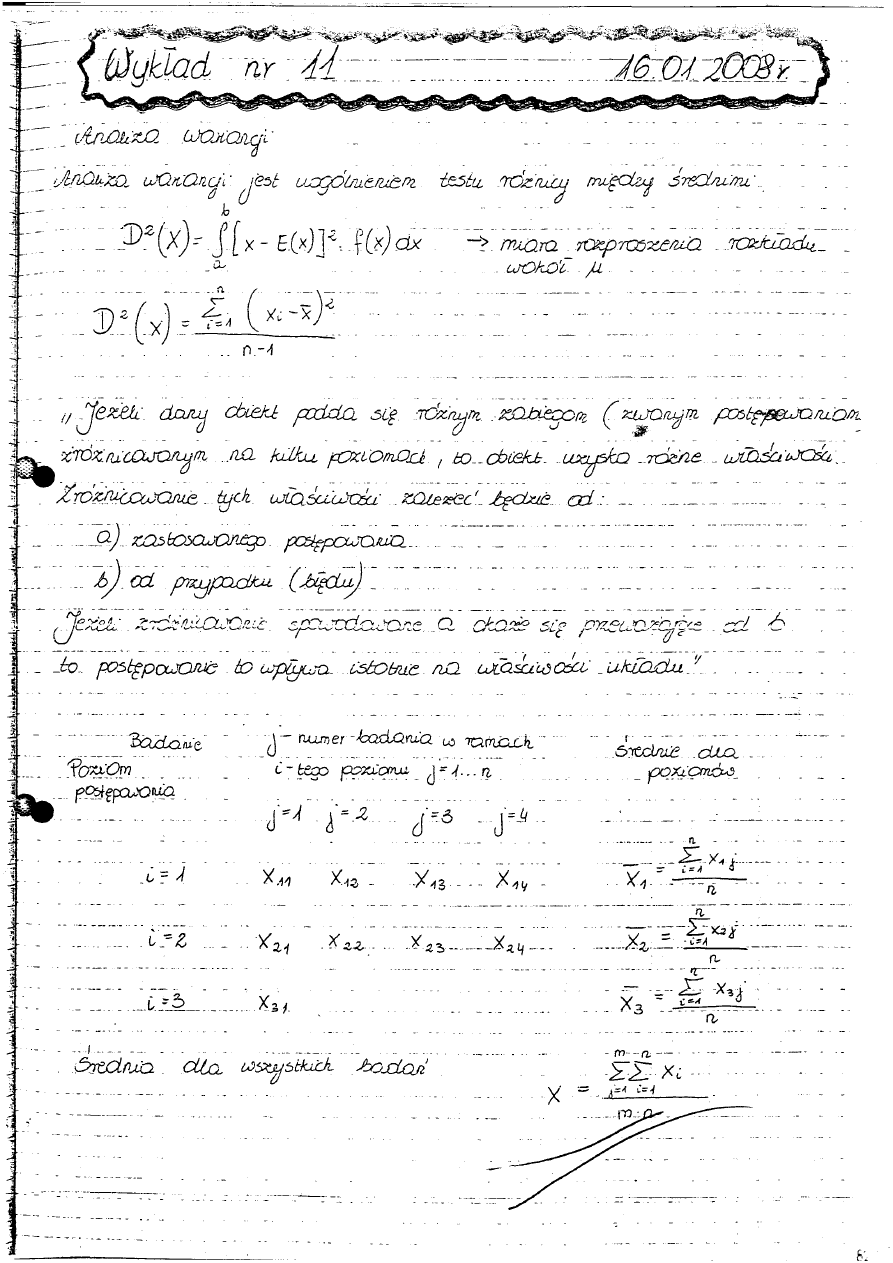 Wykład nr 11 16.01.2008r.
Analiza wariancji
Analiza wariancji jest uogólnieniem testu różnicy między średnimi.
D²(X) = ∫ₐᵇ [x - E(x)]² · f(x) dx → miara rozproszenia rozkładu
wokół μ
D²(x) = \frac{\sum_{i=1}^{n} (x_i - \bar{x})^2}{n-1}
„Jeżeli dany obiekt podda się różnym zabiegom (zwanym postępowaniom
zróżnicowanym na kilku poziomach, to obiekt uzyska różne właściwości.
Zróżnicowanie tych właściwości zależeć będzie od:
a) zastosowanego postępowania
b) od przypadku (błędu)
Jeżeli zróżnicowanie spowodowane a okaże się przeważające od b
to postępowanie to wpływa istotnie na właściwości układu"
Badanie j - numer badania w ramach średnie dla
Poziom i - tego poziomu j=1...n poziomów
postępowania
j=1 j=2 j=3 j=4
i=1 X₁₁ X₁₂ X₁₃ X₁₄ \bar{X}_1 = \frac{\sum_{i=1}^{n} x_{1j}}{n}
i=2 X₂₁ X₂₂ X₂₃ X₂₄ \bar{X}_2 = \frac{\sum_{i=1}^{n} x_{2j}}{n}
i=3 X₃₁ \bar{X}_3 = \frac{\sum_{i=1}^{n} x_{3j}}{n}
Średnia dla wszystkich badań X = \frac{\sum_{j=1}^{m} \sum_{i=1}^{n} x_i}{m·n}